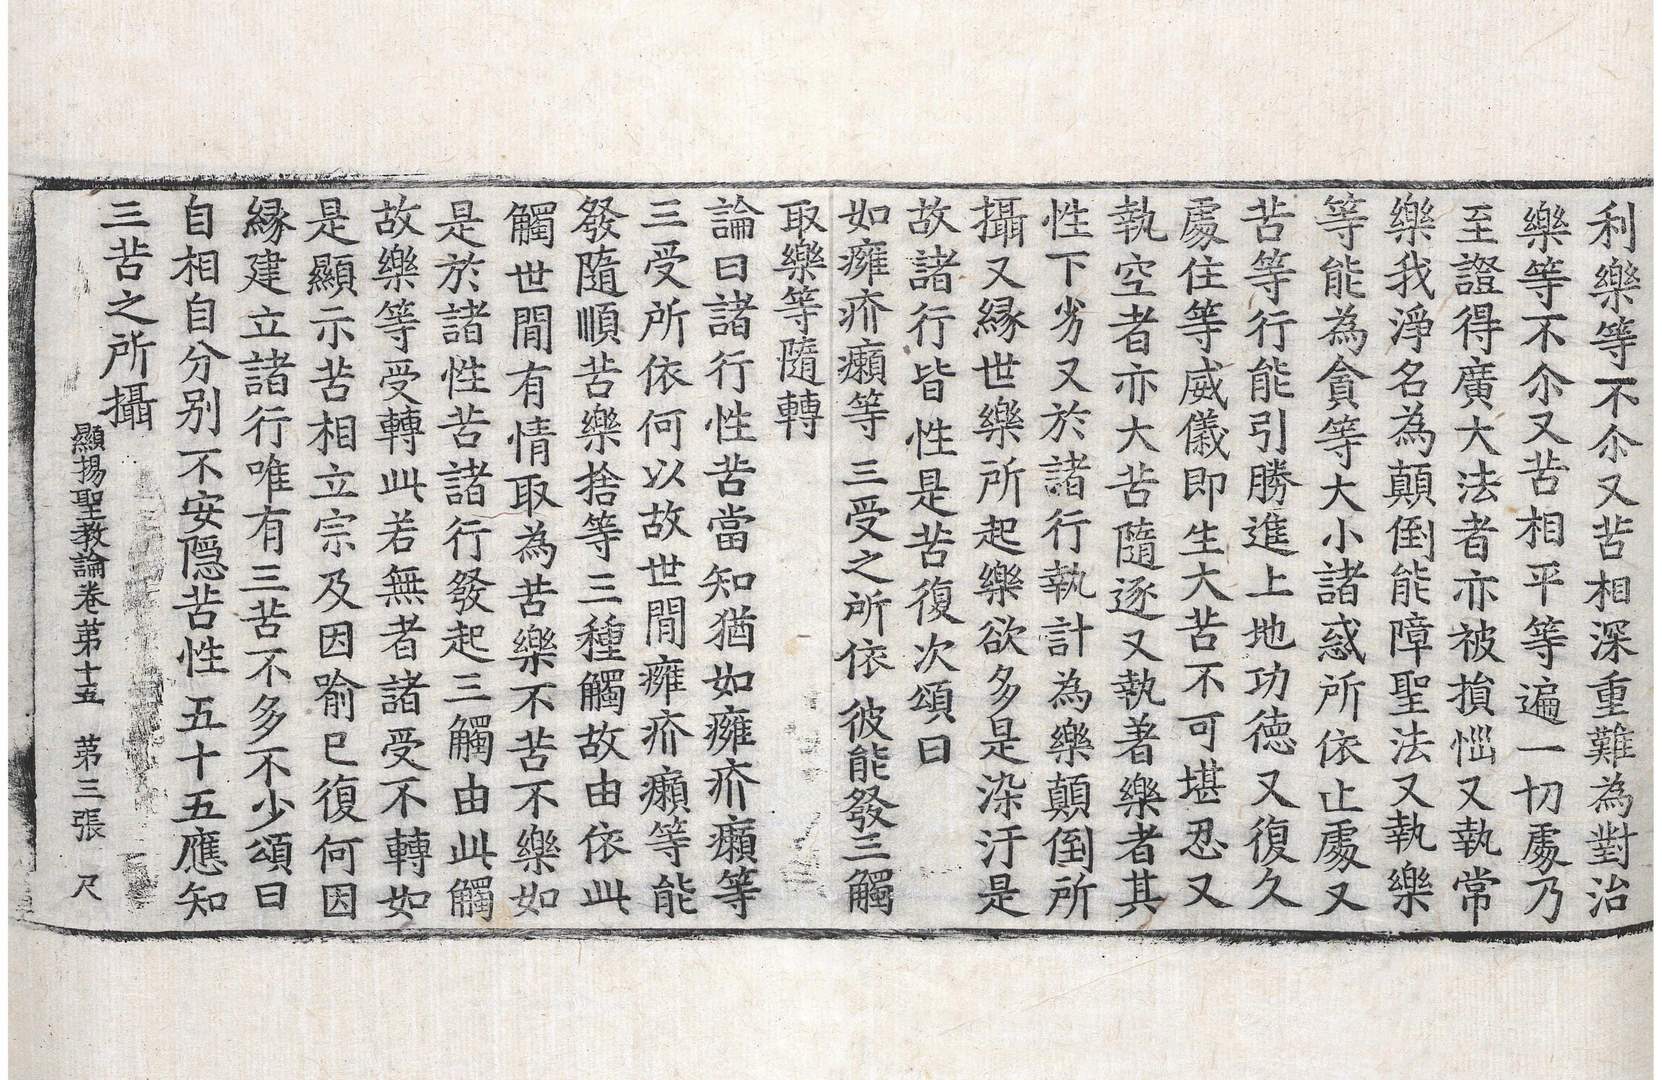 利樂等不尒又苦相深重難為對治
樂等不尒又苦相平等遍一切處乃
至證得廣大法者亦被損惱又執常
樂我淨名為顛倒能障聖法又執樂
等能為貪等大小諸惑所依止處又
苦等行能引勝進上地功德又復久
處住等威儀即生大苦不可堪忍又
執空者亦大苦隨逐又執著樂者其
性下劣又於諸行執計為樂顛倒所
攝又緣世樂所起樂欲多是染汙是
故諸行皆性是苦復次頌曰
如癰疥癩等 三受之所依 彼能發三觸
取樂等隨轉
論曰諸行性苦當知猶如癰疥癩等
三受所依何以故世間癰疥癩等能
發隨順苦樂捨等三種觸故由依此
觸世間有情取為苦樂不苦不樂如
是於諸性苦諸行發起三觸由此觸
故樂等受轉此若無者諸受不轉如
是顯示苦相立宗及因喻已復何因
緣建立諸行唯有三苦不多不少頌曰
自相自分別 不安隱苦性 五十五應知
三苦之所攝
顯揚聖教論卷第十五 第三張 尺